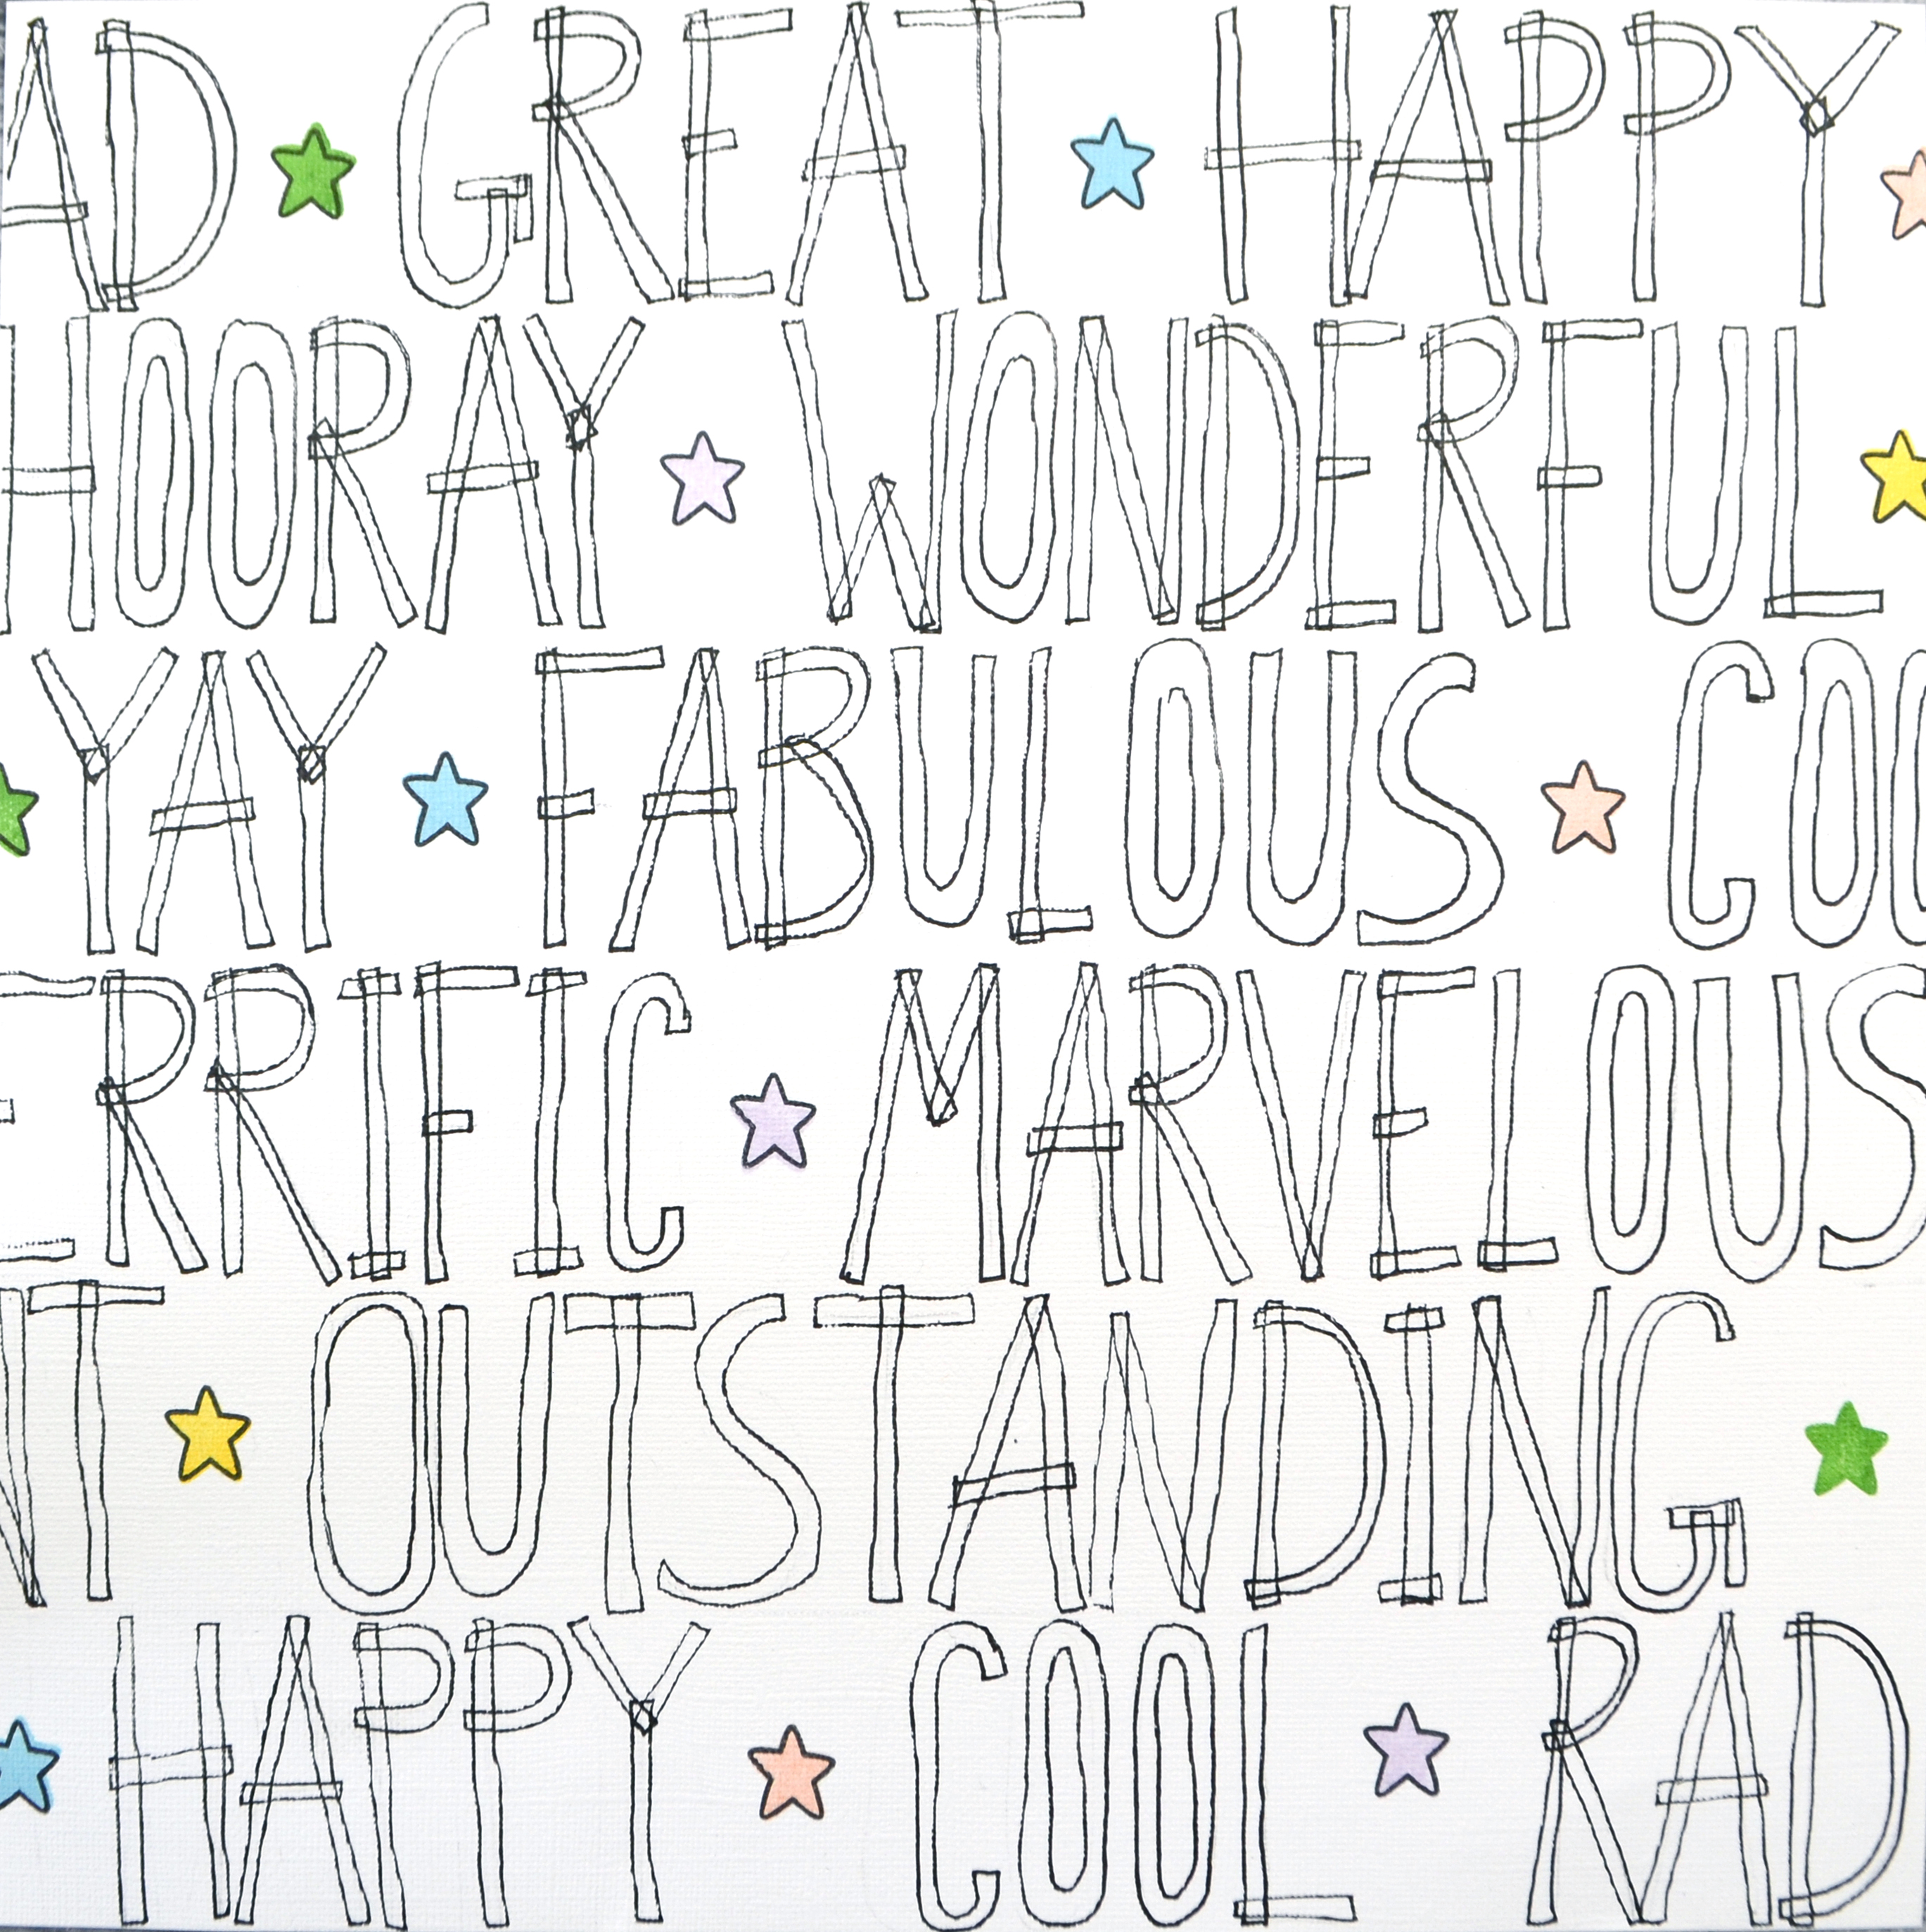 AD GREAT HAPPY
HOORAY WONDERFUL
YAY FABULOUS COO
ERRIFIC MARVELOUS
NT OUTSTANDING
HAPPY COOL RAD